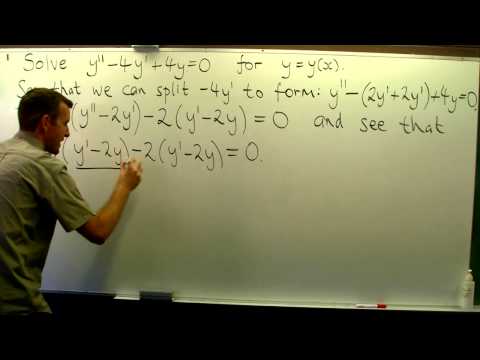 Solve y'' - 4y' + 4y = 0 for y = y(x).
See that we can split -4y' to form: y'' - (2y' + 2y') + 4y = 0
(y'' - 2y') - 2(y' - 2y) = 0 and see that
(y' - 2y) - 2(y' - 2y) = 0.